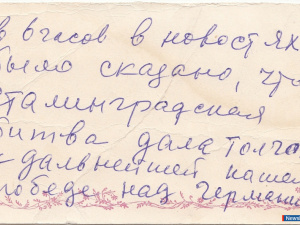 в 6 часов в новостях
было сказано, что
сталинградская
битва дала толчо
к дальнейшей нашей
победе над Германи
News